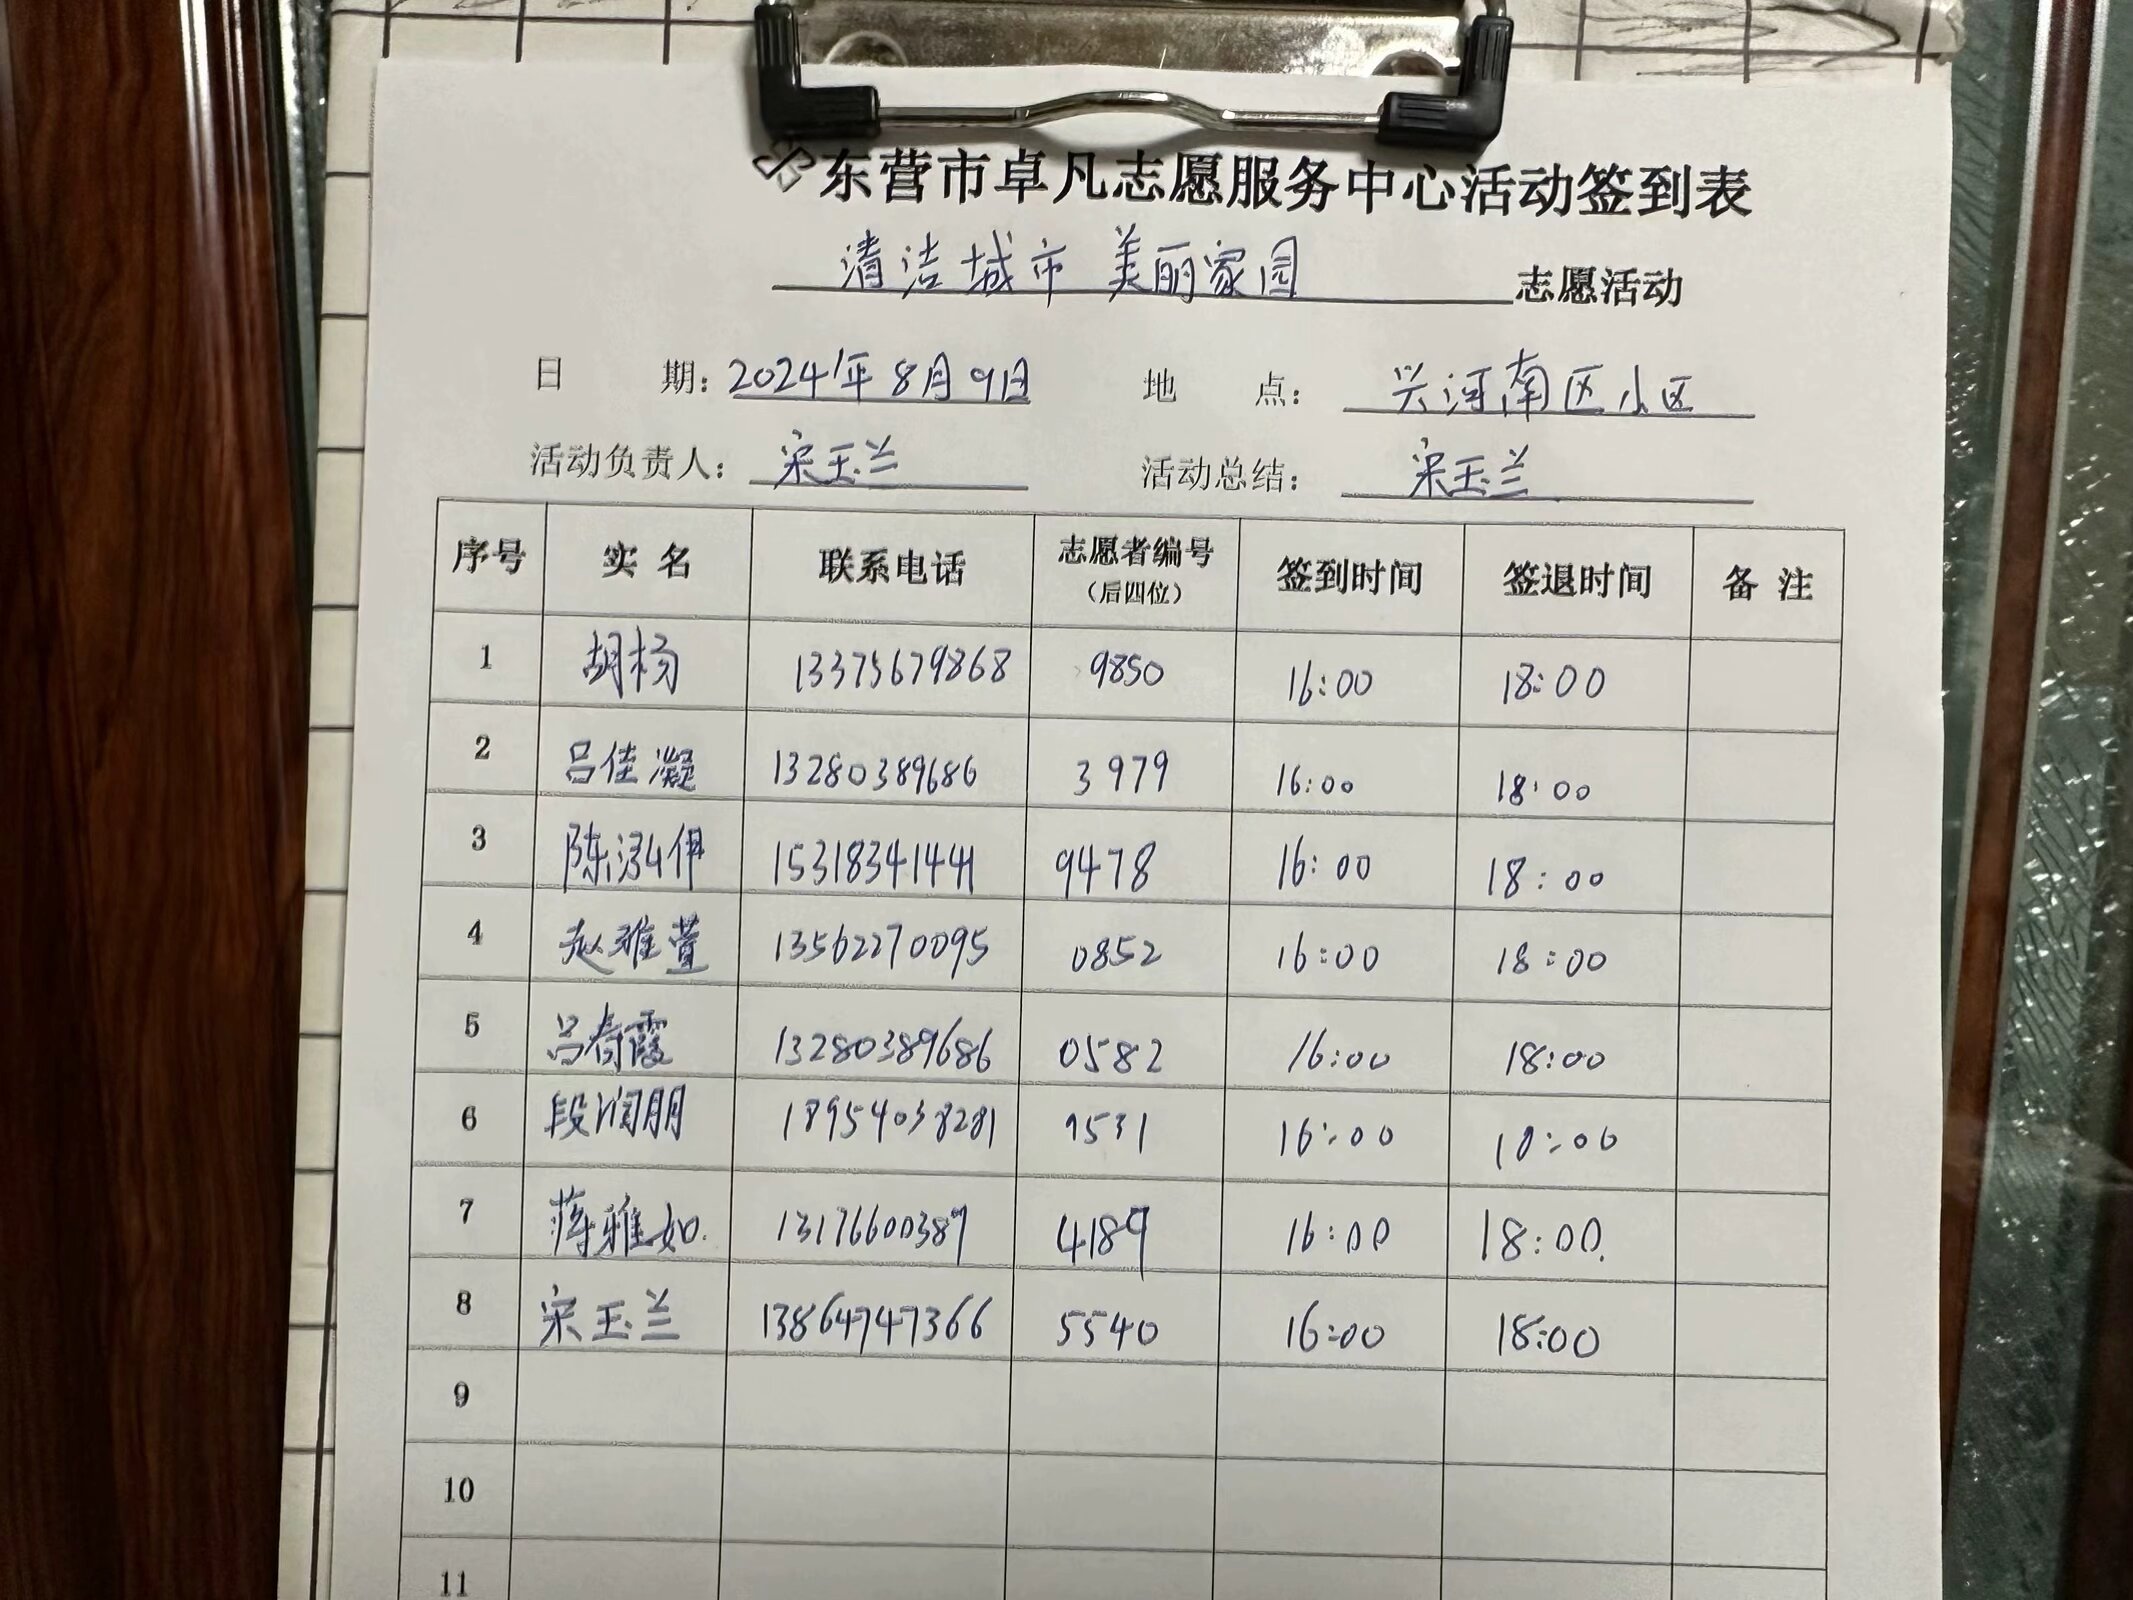 东营市卓凡志愿服务中心活动签到表
清洁城市 美丽家园 志愿活动
日 期：2024年8月9日 地 点：兴河南区小区
活动负责人：宋玉兰 活动总结：宋玉兰
序号 实名 联系电话 志愿者编号（后四位） 签到时间 签退时间 备注
1 胡杨 13375679868 9850 16:00 18:00
2 吕佳凝 13280389686 3979 16:00 18:00
3 陈泓伊 15318341441 9478 16:00 18:00
4 赵雅萱 13562270095 0852 16:00 18:00
5 吕春霞 13280389686 0582 16:00 18:00
6 段润朋 18954038281 9531 16:00 18:00
7 蒋雅如 13176600389 4189 16:00 18:00
8 宋玉兰 13864747366 5540 16:00 18:00
9
10
11